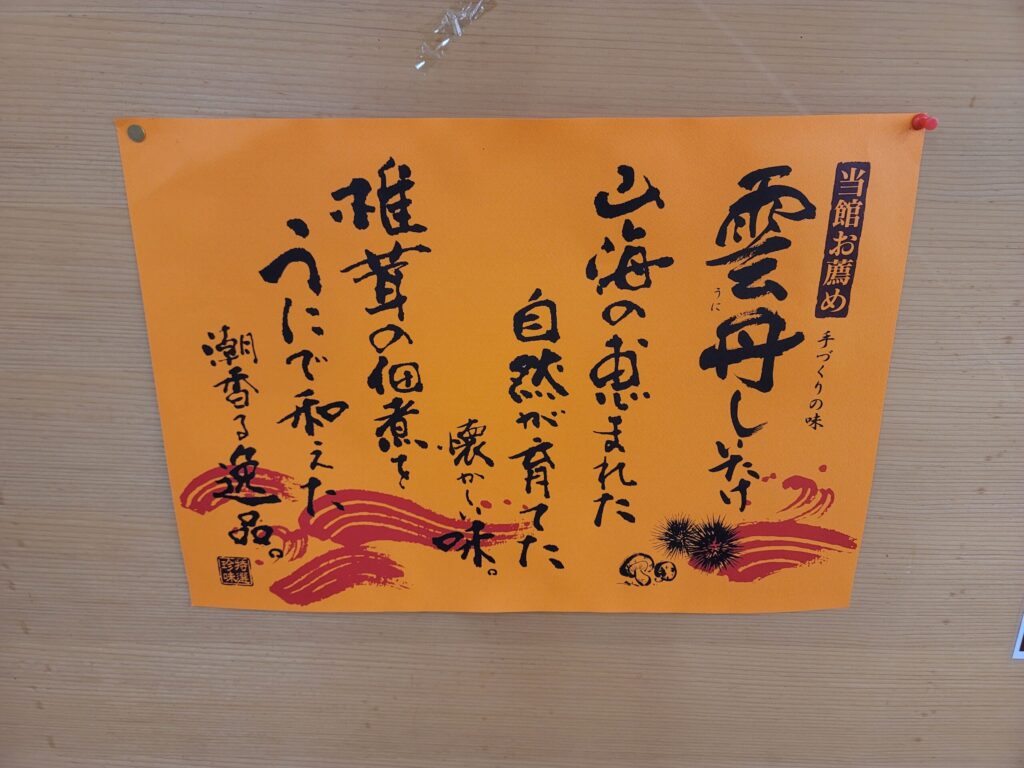 当館お薦め
手づくりの味
雲丹しいたけ
うに
山海の恵まれた
自然が育てた
懐かしい味。
椎茸の佃煮を
うにで和えた
潮香る逸品。
特選
珍味